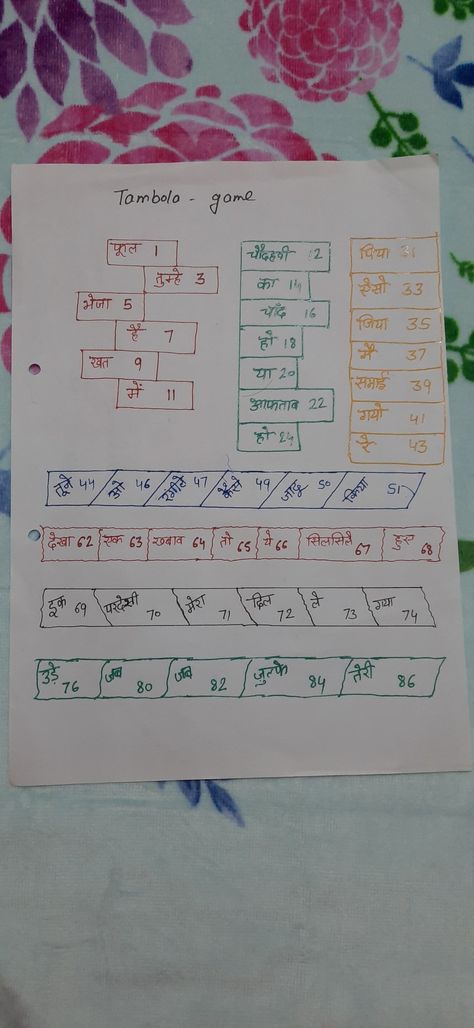 Tambola - game
फूल 1
तुम्हे 3
भेजा 5
है 7
खत 9
में 11
चौदहवी 12
का 14
चाँद 16
हो 18
या 20
आफताब 22
हो 24
पिया 31
ऐसो 33
जिया 35
मै 37
समाई 39
गयो 41
रे 43
तूने 44 ओ 46 रंगीले 47 कैसे 49 जादू 50 किया 51
देखा 62 एक 63 ख्वाब 64 तो 65 ये 66 सिलसिले 67 हुए 68
इक 69 परदेसी 70 मेरा 71 दिल 72 ले 73 गया 74
उड़े 76 जब 80 जब 82 जुल्फे 84 तेरी 86